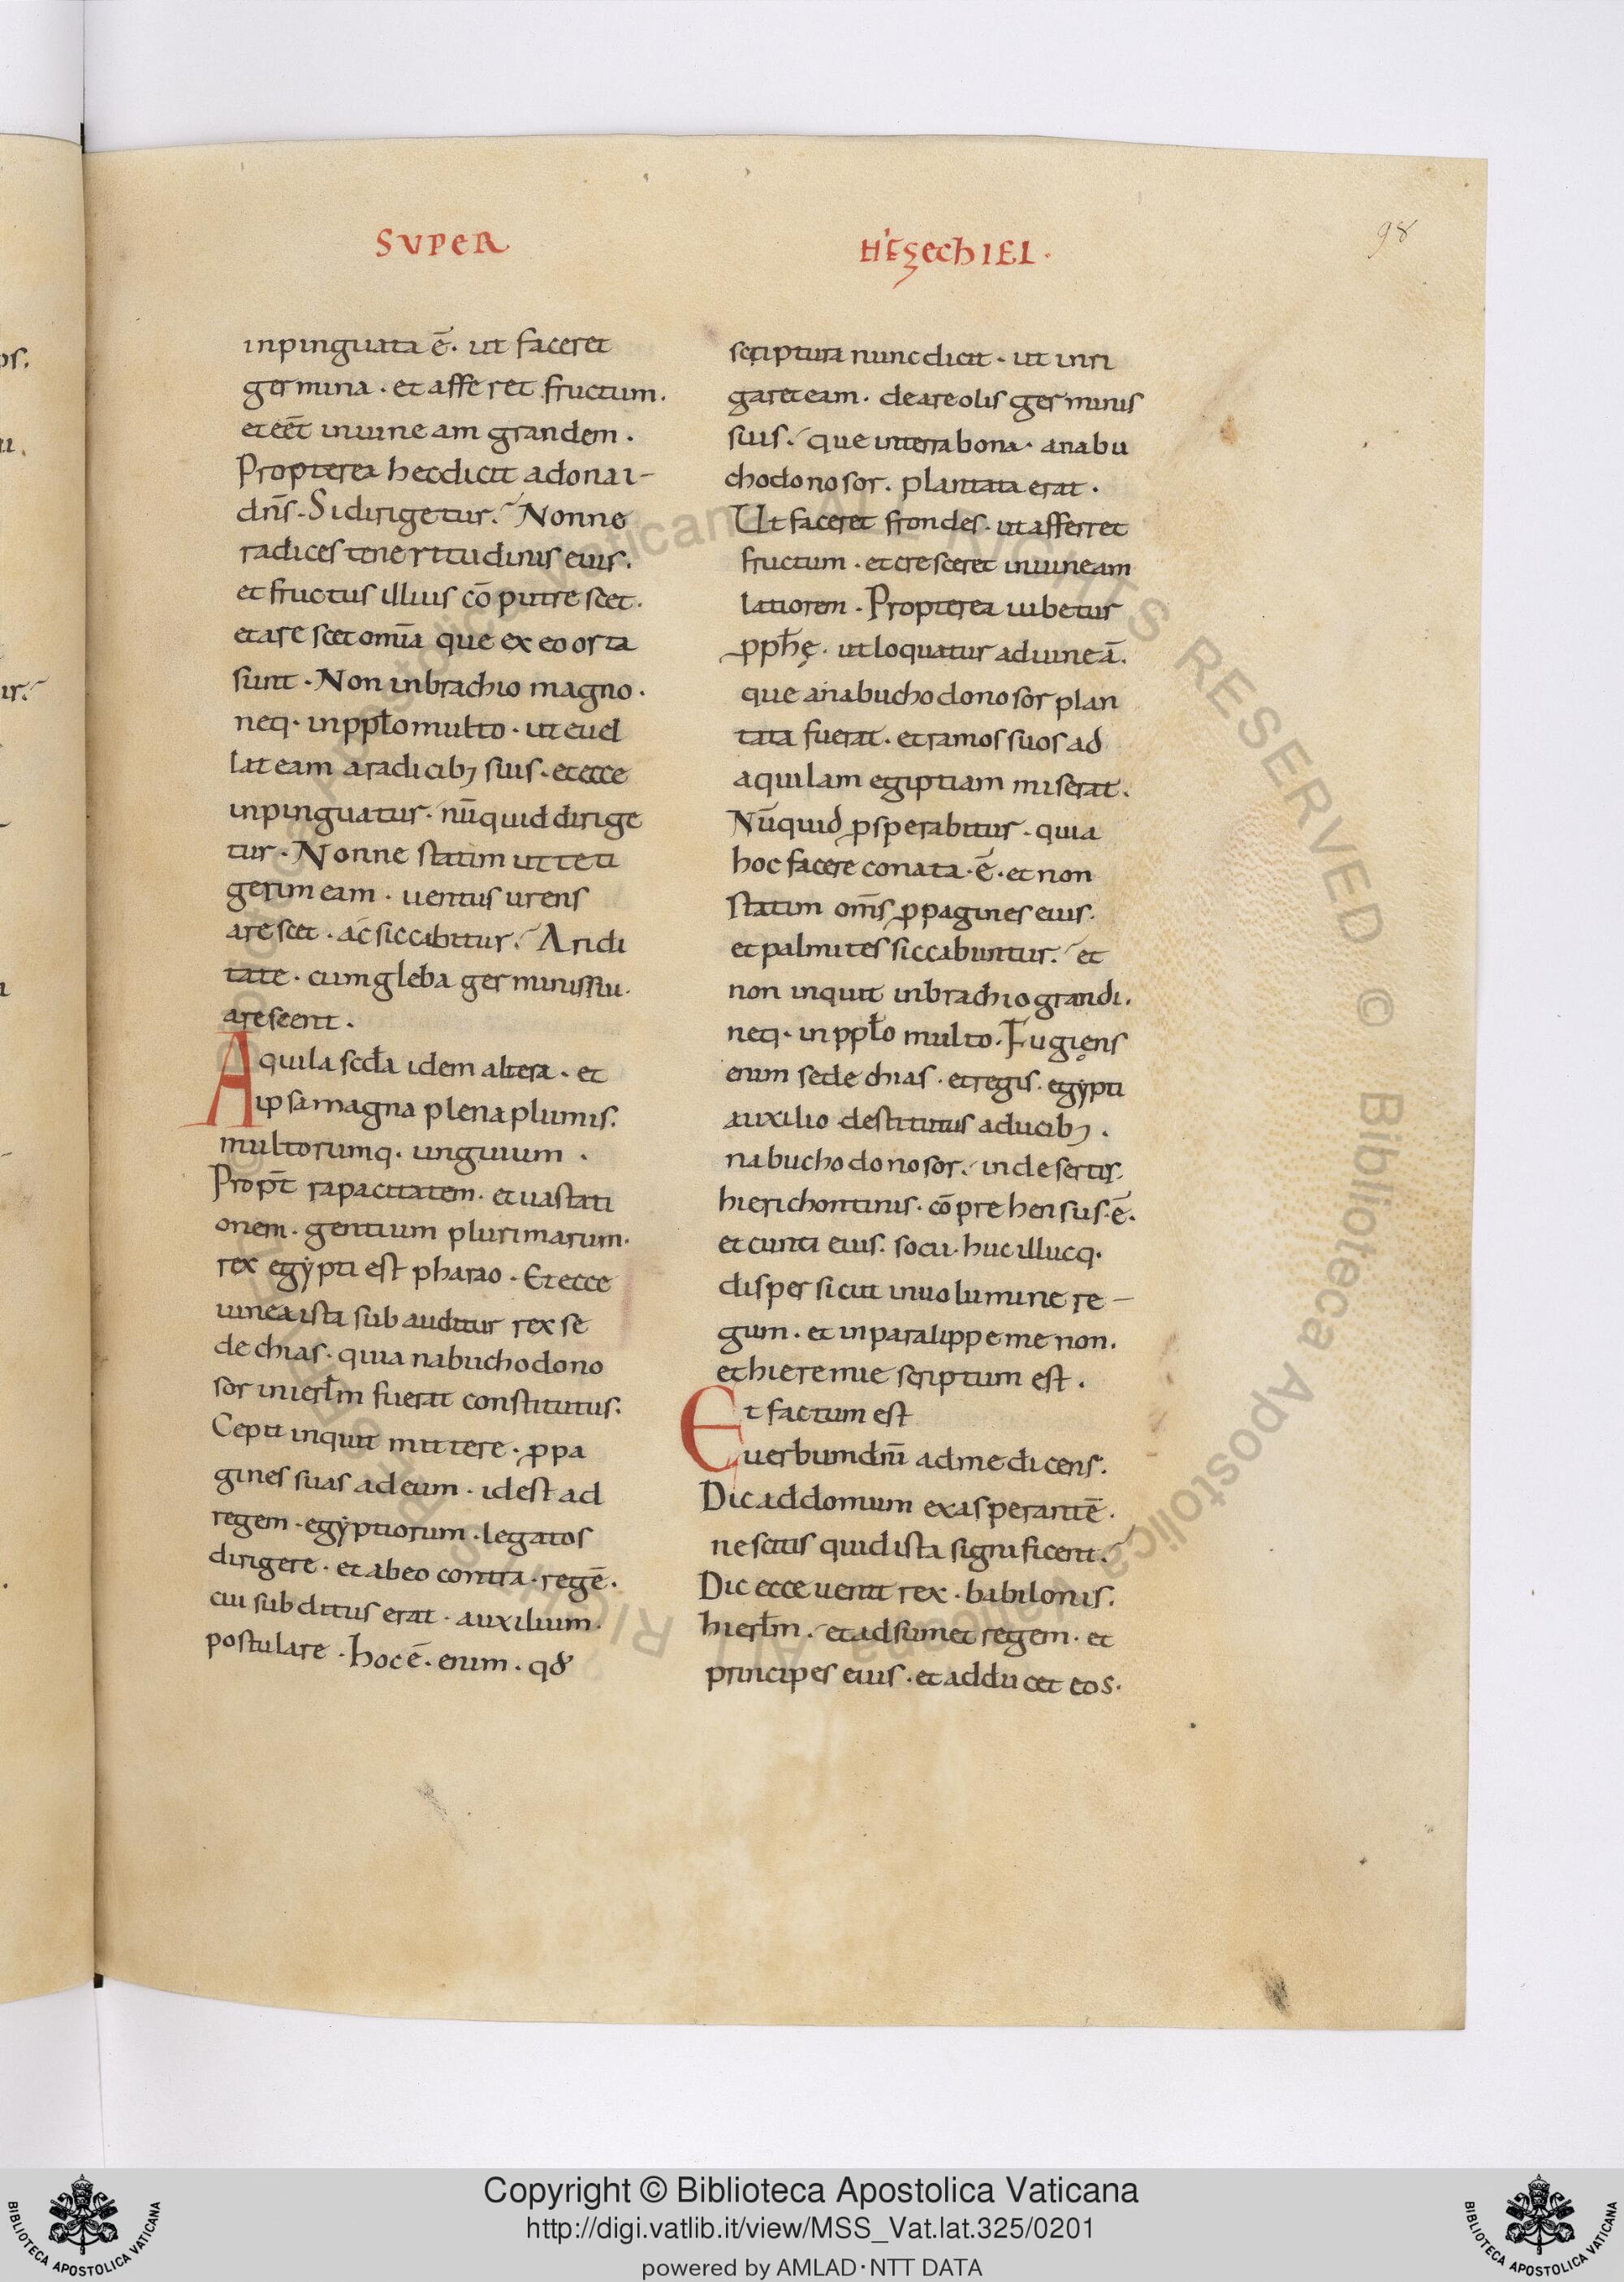 SUPER
HEZECHIEL.
98
inpinguata ē. ut faceret
germina. et afferet fructum.
et eēt in uineam grandem.
Propterea hec dicit adonai
dn̄s. Si dirigetur. Nonne
radices teneritudinis eius.
et fructus illius cōputrescet.
et arescet om̄ia que ex eo orta
sunt. Non in brachio magno.
neq. in pplō multo. ut euel
lat eam a radicib; suis. et ecce
inpinguatur. nūquid dirige
tur. Nonne statim ut teti
gerim eam. uentus urens
arescet. ac siccabitur. Aridi
tate. cum gleba germinis su.
arescent.
Aquila scďa idem altera. et
ipsa magna plena plumis.
multorumq. unguium.
Propt̄ rapacitatem. et uastati
onem. gentium plurimarum.
rex egẏpti est pharao. Et ecce
uinea ista subauditur rex se
dechias. quia nabuchodono
sor in ierłm fuerat constitutus.
Cepit inquit mittere. ꝓpa
gines suas ad eum. id est ad
regem. egẏptiorum. legatos
dirigere. et ab eo contra. regē.
cui subditus erat. auxilium.
postulare. hoc ē. enim. qđ
scriptura nunc dicit. ut inri
garet eam. de areolis germinis
suis. que in terra bona. a nabu
chodonosor. plantata erat.
Ut faceret frondes. ut afferret
fructum. et cresceret in uineam
latiorem. Propterea iubetur
ꝓpħę. ut loquatur ad uineā.
que a nabuchodonosor plan
tata fuerat. et ramos suos ad
aquilam egiptiam miserat.
Nūquid ꝓsperabitur. quia
hoc facere conata. ē. et non
statim om̄s ꝓpagines eius.
et palmites siccabuntur. et
non inquit in brachio grandi.
neq. in pplō multo. Fugiens
enim sedechias. et regis. egẏpti
auxilio destitutus a ducib;.
nabuchodonosor. in desertis.
hierichontinis. cōprehensus. ē.
et cunti eius. socii. huc illucq.
dispersi sicut in uolumine re
gum. et in paralippemenon.
et hieremie scriptum est.
Et factum est
uerbum dn̄i ad me dicens.
Dic ad domum exasperantē.
nescitis quid ista significent.
Dic ecce uenit rex. babilonis.
hierłm. et adsumet regem. et
principes eius. et adducet eos.
Copyright © Biblioteca Apostolica Vaticana
http://digi.vatlib.it/view/MSS_Vat.lat.325/0201
powered by AMLAD·NTT DATA